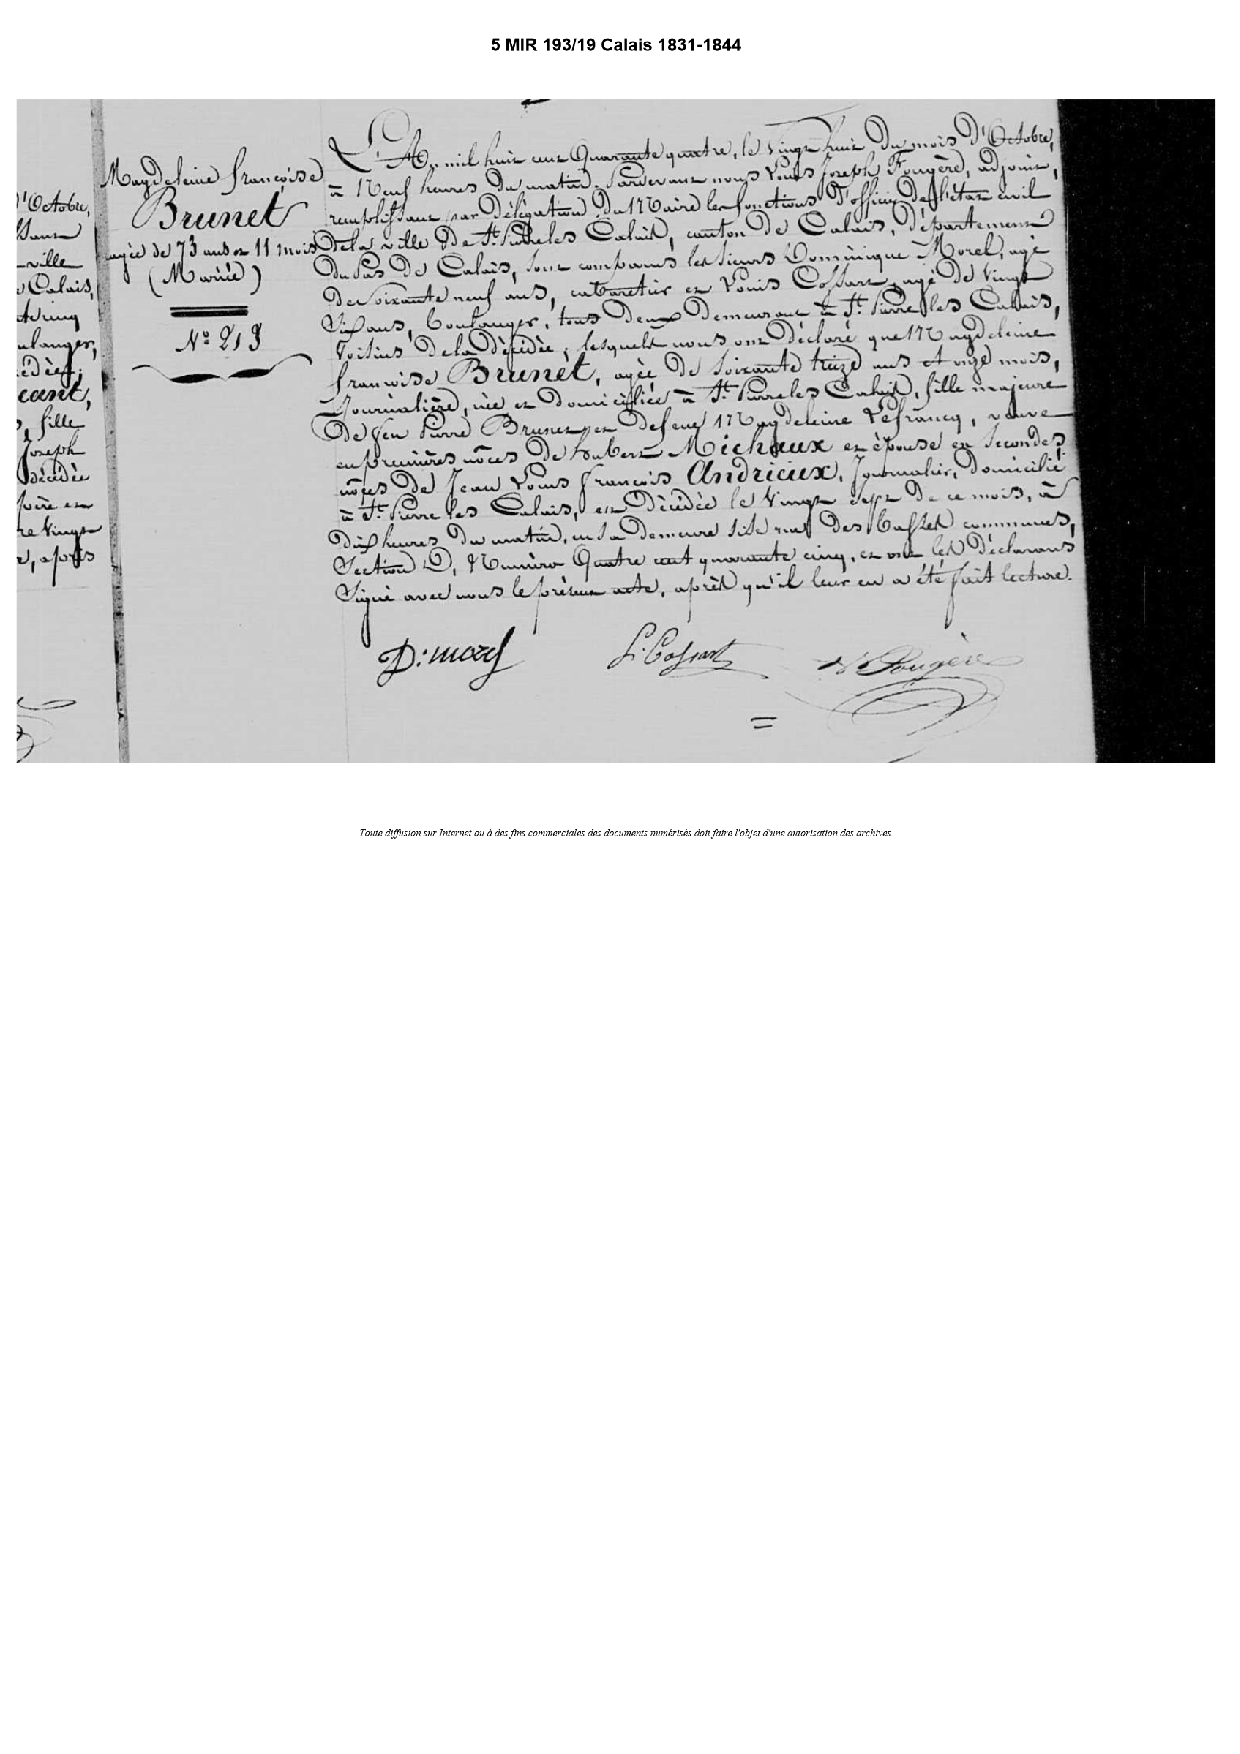 5 MIR 193/19 Calais 1831-1844
d'Octobre,
ville
Calais,
boulanger,
fille
Joseph
décédée
vingt
, après
Magdeleine françoise
Brunet
agée de 73 ans et 11 mois
(Mariée)
N° 213
L'An mil huit cent Quarante quatre, le vingt huit du mois d'Octobre,
à Neuf heures du matin, Pardevant nous Louis Joseph Fougère, adjoint,
remplissant par délégation du Maire les fonctions d'officier de l'état civil
de la ville de St. Pierre les Calais, canton de Calais, département
du Pas de Calais, sont comparus les sieurs Dominique Morel, agé
de soixante neuf ans, cabaretier et Louis Cossart, agé de vingt
six ans, boulanger, tous deux demeurant à St. Pierre les Calais,
voisins de la décédée, lesquels nous ont déclaré que Magdeleine
françoise Brunet, agée de soixante treize ans et onze mois,
journalière, née et domiciliée à St. Pierre les Calais, fille majeure
de feu Pierre Brunet et de feue Magdeleine Lefrancq, veuve
en premières nôces de hubert Michaux et épouse en secondes
nôces de Jean Louis françois Andrieux, Journalier, domicilié
à St. Pierre les Calais, est décédée le vingt sept de ce mois, à
dix heures du matin, en sa demeure sise rue des basses communes,
Section D, Numéro Quatre cent quarante cinq, et ont les déclarans
signé avec nous le présent acte, après qu'il leur en a été fait lecture.
D: morel L: Cossart Ls Fougère
Toute diffusion sur Internet ou à des fins commerciales des documents numérisés doit faire l'objet d'une autorisation des archives